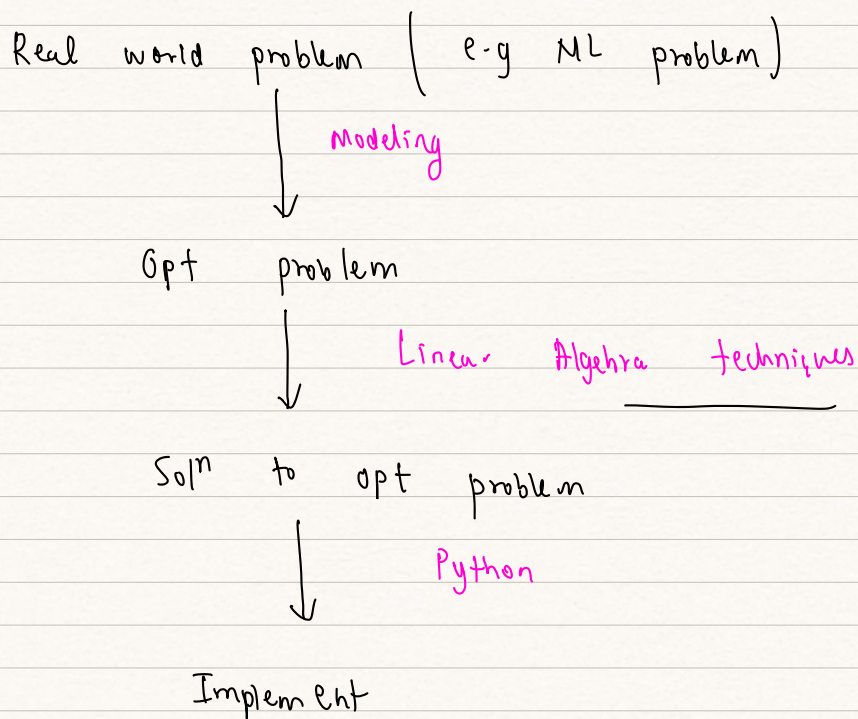 Real world problem ( e-g ML problem)
Modeling
Opt problem
Linear Algebra techniques
Solⁿ to opt problem
Python
Implement